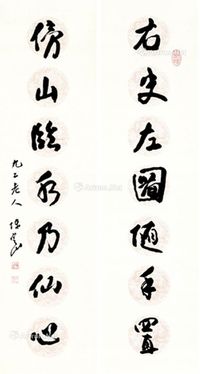 右史左圖隨手置
傍山臨水乃仙心
九二老人